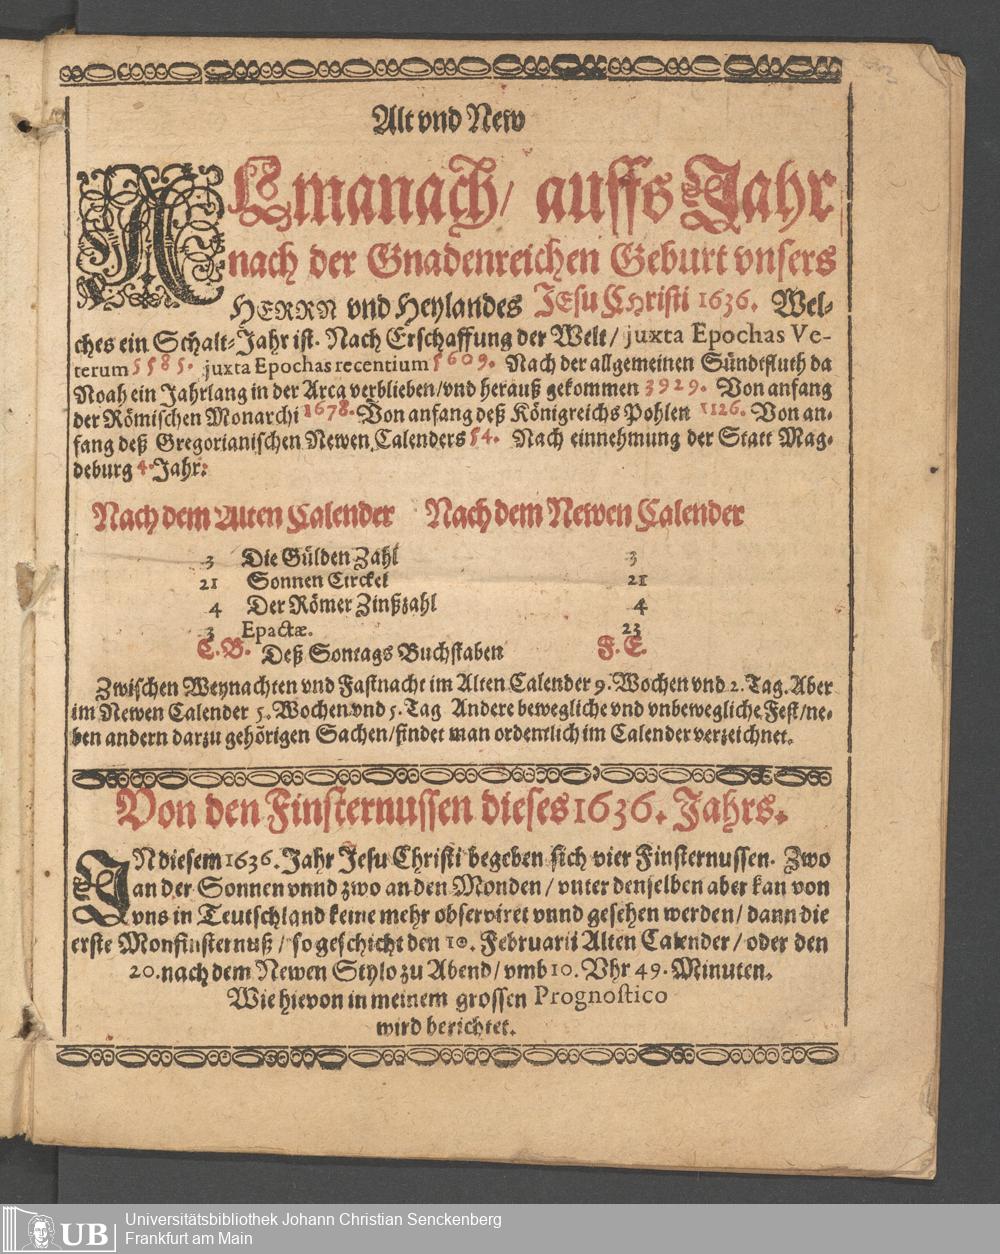 Alt vnd New
ALmanach/ auffs Jahr
nach der Gnadenreichen Geburt vnsers
HERRN vnd Heylandes JEsu CHristi 1636. Wel-
ches ein Schalt-Jahr ist. Nach Erschaffung der Welt/ juxta Epochas Ve-
terum 5585. juxta Epochas recentium 5609. Nach der allgemeinen Sündtfluth da
Noah ein Jahrlang in der Arca verblieben/vnd herauß gekommen 3929. Von anfang
der Römischen Monarchi 1678. Von anfang deß Königreichs Pohlen 1126. Von an-
fang deß Gregorianischen Newen Calenders 54. Nach einnehmung der Statt Mag-
deburg 4. Jahr:
Nach dem Alten Calender Nach dem Newen Calender
3 Die Gülden Zahl 3
21 Sonnen Circkel 21
4 Der Römer Zinßzahl 4
3 Epactæ. 23
C. B. Deß Sontags Buchstaben F. E.
Zwischen Weynachten vnd Fastnacht im Alten Calender 9. Wochen vnd 2. Tag. Aber
im Newen Calender 5. Wochen vnd 5. Tag Andere bewegliche vnd vnbewegliche Fest/ne-
ben andern darzu gehörigen Sachen/findet man ordentlich im Calender verzeichnet.
Von den Finsternussen dieses 1636. Jahrs.
JN diesem 1636. Jahr Jesu Christi begeben sich vier Finsternussen. Zwo
an der Sonnen vnnd zwo an den Monden/ vnter denselben aber kan von
vns in Teutschland keine mehr observiret vnnd gesehen werden/ dann die
erste Monfinsternuß/ so geschicht den 10. Februarii Alten Calender/ oder den
20. nach dem Newen Stylo zu Abend/ vmb 10. Vhr 49. Minuten.
Wie hievon in meinem grossen Prognostico
wird berichtet.
UB Universitätsbibliothek Johann Christian Senckenberg
Frankfurt am Main